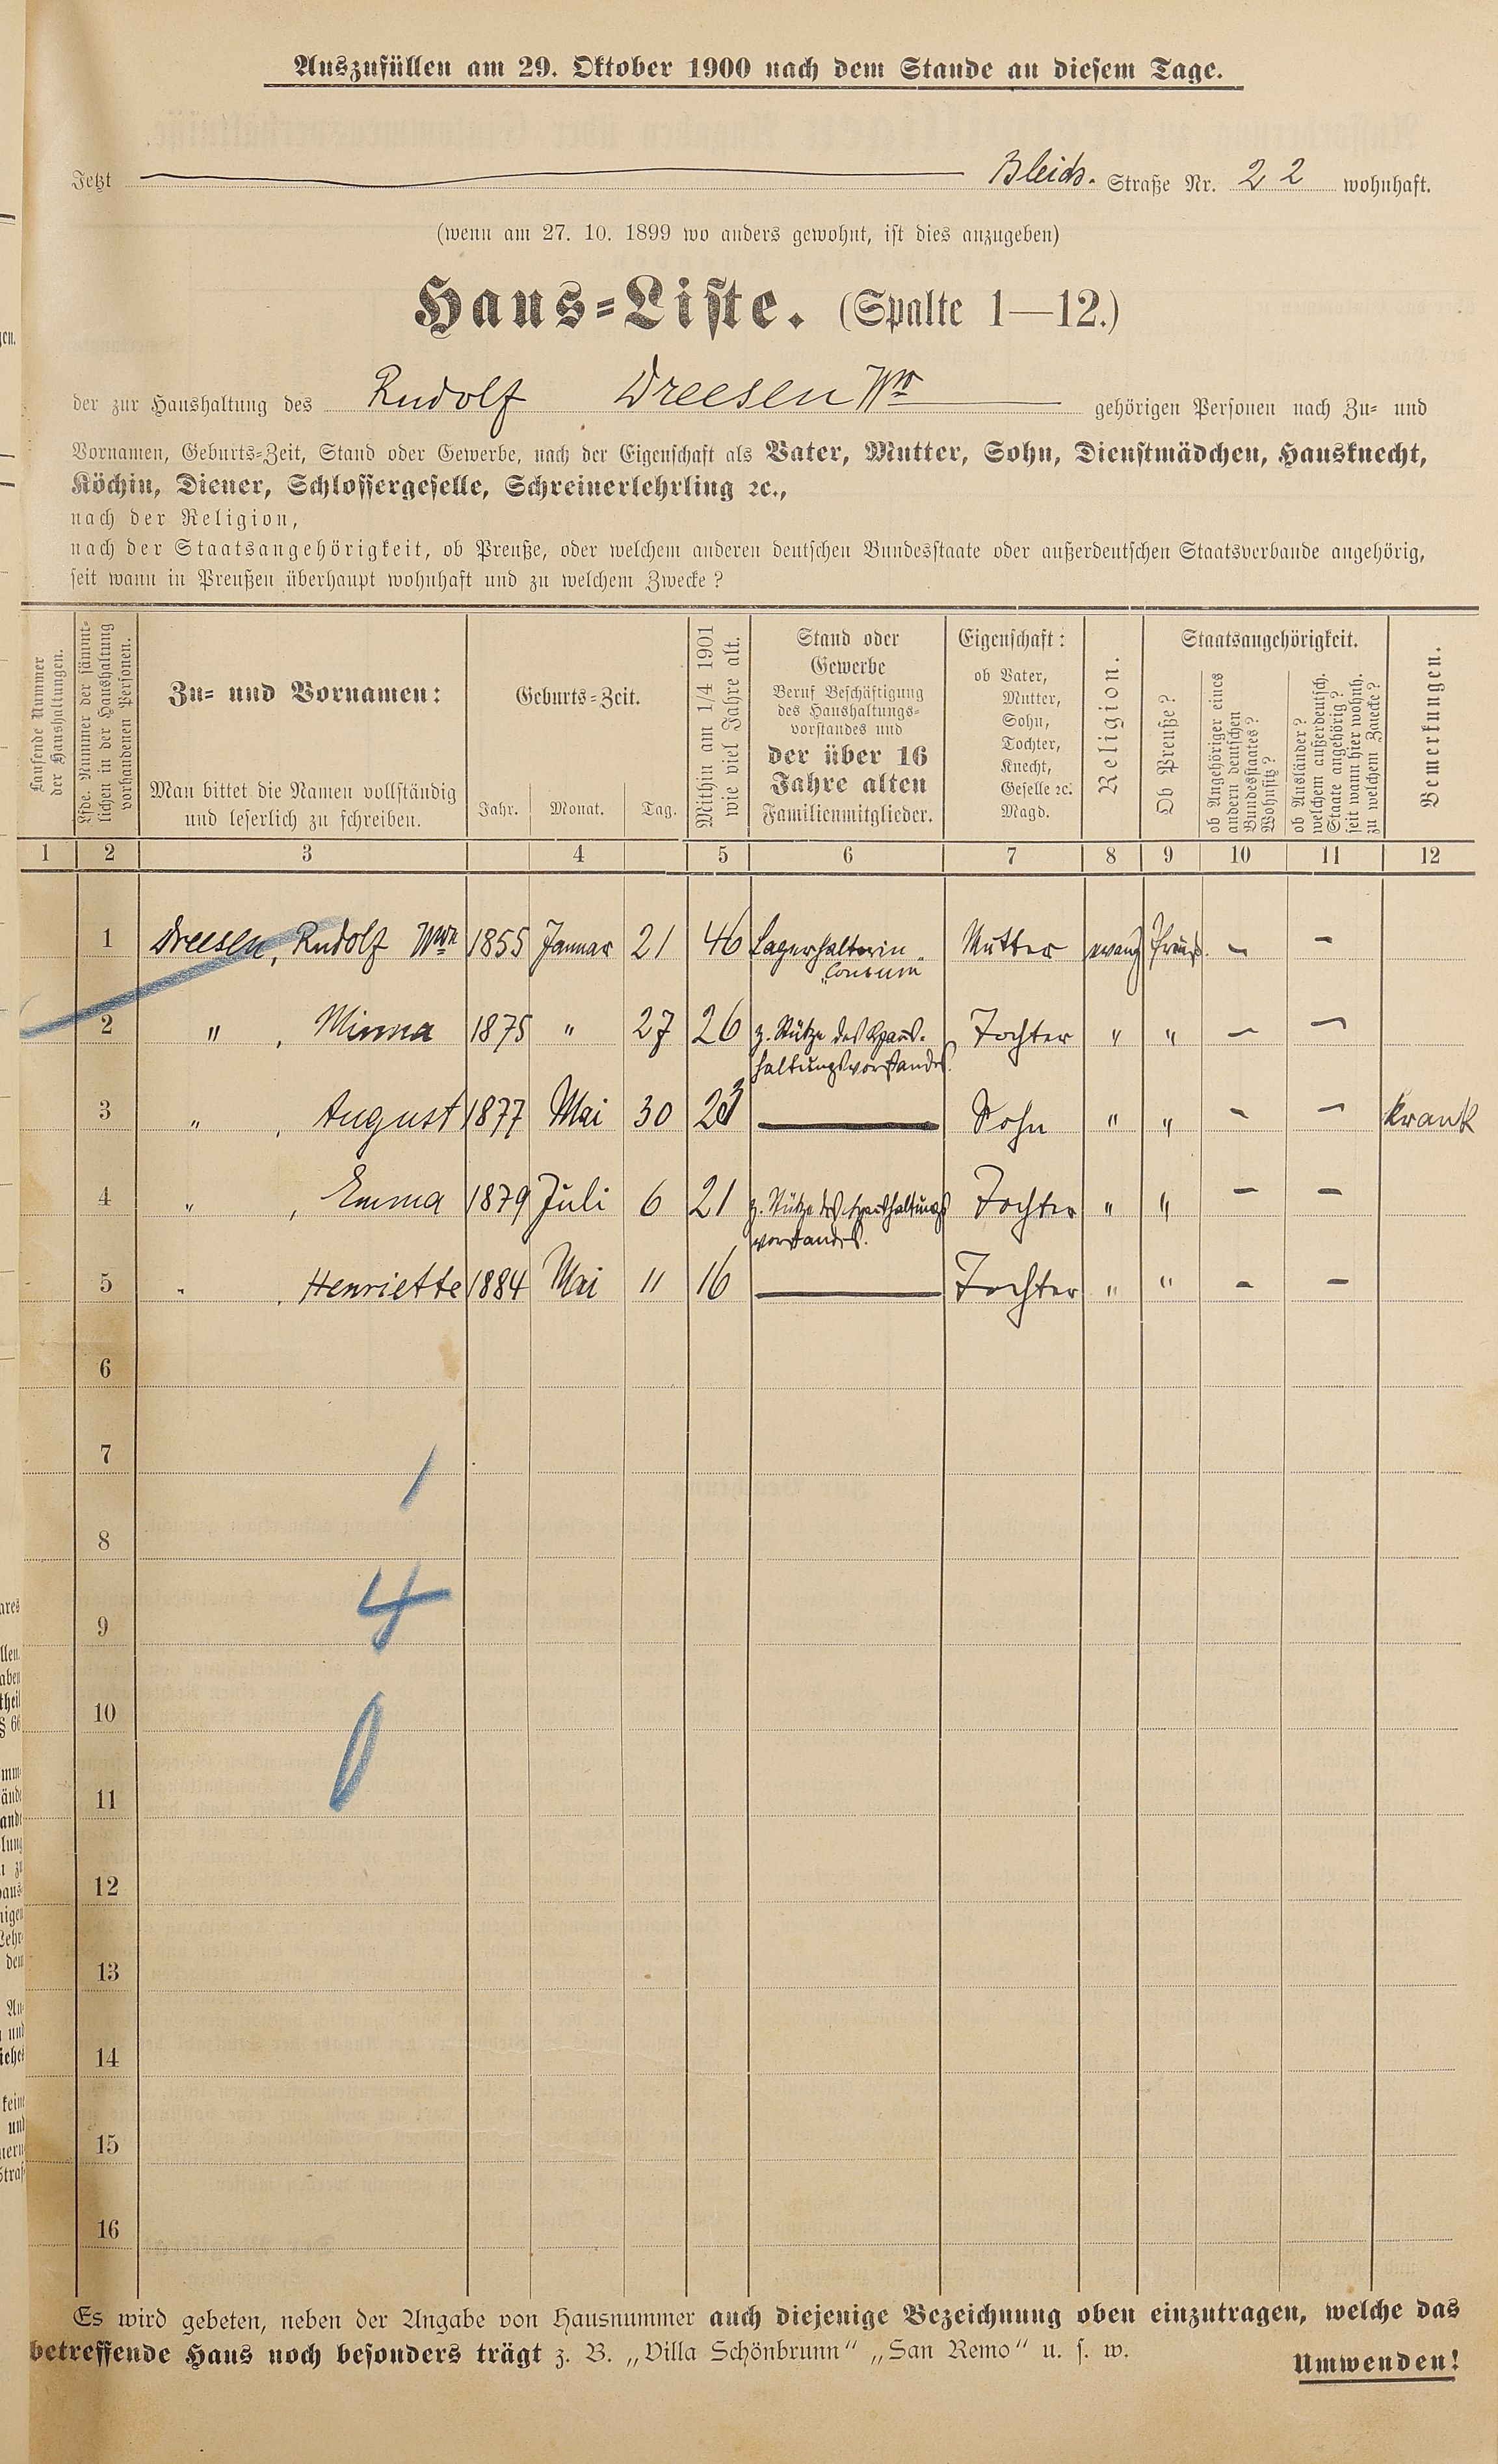 Auszufüllen am 29. Oktober 1900 nach dem Stande an diesem Tage.
Jetzt Bleich. Straße Nr. 22 wohnhaft.
(wenn am 27. 10. 1899 wo anders gewohnt, ist dies anzugeben)
Haus-Liste. (Spalte 1—12.)
der zur Haushaltung des Rudolf Dreesen Wwe gehörigen Personen nach Zu- und
Vornamen, Geburts-Zeit, Stand oder Gewerbe, nach der Eigenschaft als Vater, Mutter, Sohn, Dienstmädchen, Hausknecht,
Köchin, Diener, Schlossergeselle, Schreinerlehrling ꝛc.,
nach der Religion,
nach der Staatsangehörigkeit, ob Preuße, oder welchem anderen deutschen Bundesstaate oder außerdeutschen Staatsverbande angehörig,
seit wann in Preußen überhaupt wohnhaft und zu welchem Zwecke?
Laufende Nummer
der Haushaltungen.
Lfde. Nummer der sämmt-
lichen in der Haushaltung
vorhandenen Personen.
Zu- und Vornamen:
Man bittet die Namen vollständig
und leserlich zu schreiben.
Geburts-Zeit.
Jahr. Monat. Tag.
Mithin am 1/4 1901
wie viel Jahre alt.
Stand oder
Gewerbe
Beruf Beschäftigung
des Haushaltungs-
vorstandes und
der über 16
Jahre alten
Familienmitglieder.
Eigenschaft:
ob Vater,
Mutter,
Sohn,
Tochter,
Knecht,
Geselle ꝛc.
Magd.
Religion.
Staatsangehörigkeit.
Ob Preuße?
ob Angehöriger eines
andern deutschen
Bundesstaates?
Wohnsitz?
ob Ausländer?
welchem außerdeutsch.
Staate angehörig?
seit wann hier wohnh.
zu welchem Zwecke?
Bemerkungen.
1 2 3 4 5 6 7 8 9 10 11 12
1 Dreesen, Rudolf Wwe 1855 Januar 21 46 Lagerhalterin Mutter evang Preuß. – –
Consum
2 " , Minna 1875 " 27 26 z. Stütze des Haus- Tochter " " – –
haltungsvorstandes.
3 " , August 1877 Mai 30 23 — Sohn " " – – krank
4 " , Emma 1879 Juli 6 21 z. Stütze des Haushaltungs Tochter " " – –
vorstandes.
5 " , Henriette 1884 Mai 11 16 — Tochter " " – –
6
7
1
8
9
4
10
11
0
12
13
14
15
16
Es wird gebeten, neben der Angabe von Hausnummer auch diejenige Bezeichnung oben einzutragen, welche das
betreffende Haus noch besonders trägt z. B. „Villa Schönbrunn“ „San Remo“ u. s. w.
Umwenden!